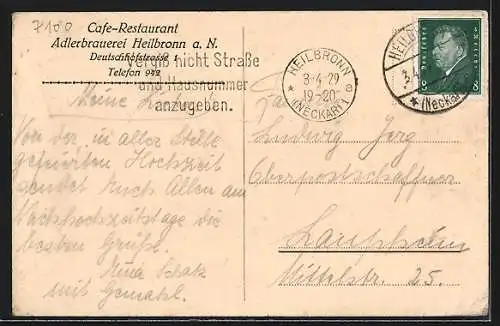 7100
Cafe-Restaurant
Adlerbrauerei Heilbronn a. N.
Deutschhofstrasse 1
Telefon 942
Vergiß nicht Straße
und Hausnummer
anzugeben.
HEILBRONN
3.4.29
19-20
* (NECKAR) a
HEILBRONN
3.4
* (Neckar)
Deutsches Reich
8 8
Meine Lieben!
Von der in aller Stille
gefeierten Hochzeit
sendet Euch Allen am
Nachhochzeitstage die
besten Grüße.
Schatz
mit Gemahl.
Ludwig Jerg
Oberpostschaffner
Laupheim
Mittelstr. 25.